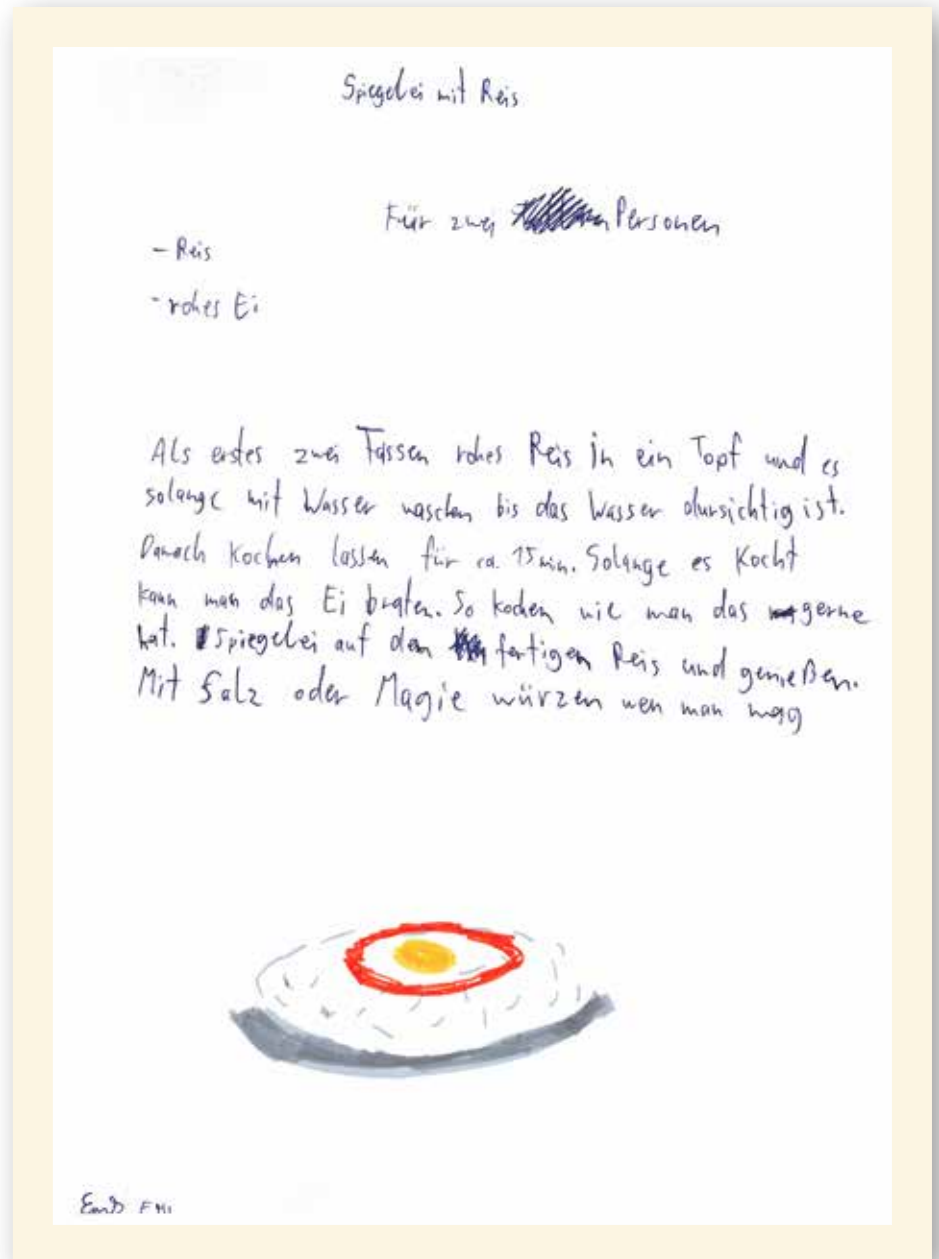 Spiegelei mit Reis
Für zwei Personen
- Reis
- rohes Ei
Als erstes zwei Tassen rohes Reis in ein Topf und es
solange mit Wasser waschen bis das Wasser dursichtig ist.
Danach kochen lassen für ca. 15 min. Solange es kocht
kann man das Ei braten. So kochen wie man das gerne
hat. Spiegelei auf den fertigen Reis und genießen.
Mit Salz oder Magie würzen wen man mag